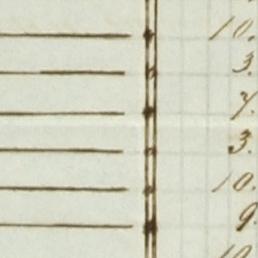 10.
3.
7.
3.
10.
9.
10